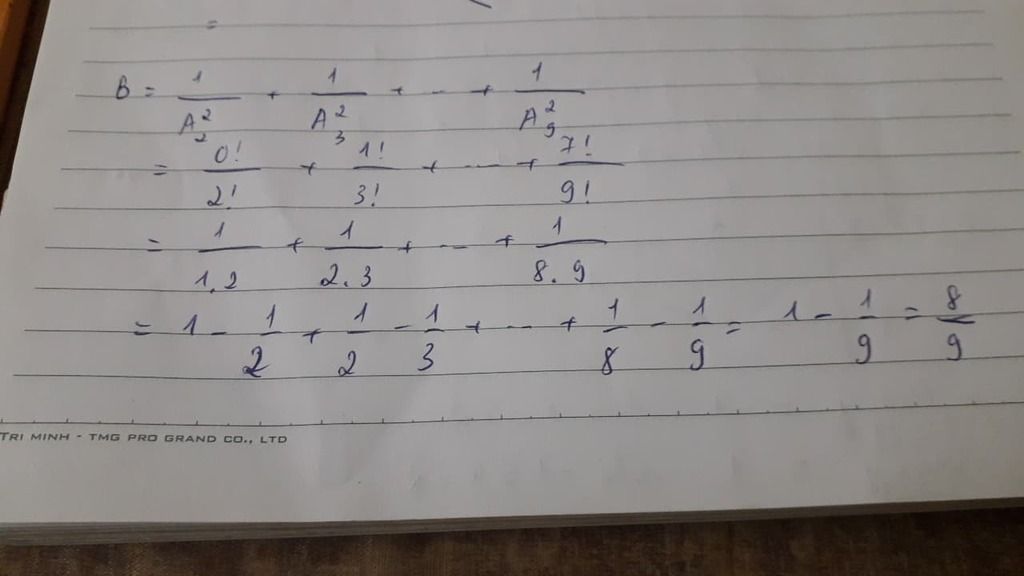 =
B = 1/A²₂ + 1/A²₃ + ... + 1/A²₉
= 0!/2! + 1!/3! + ... + 7!/9!
= 1/1.2 + 1/2.3 + ... + 1/8.9
= 1 - 1/2 + 1/2 - 1/3 + ... + 1/8 - 1/9 = 1 - 1/9 = 8/9
TRI MINH - TMG PRO GRAND CO., LTD